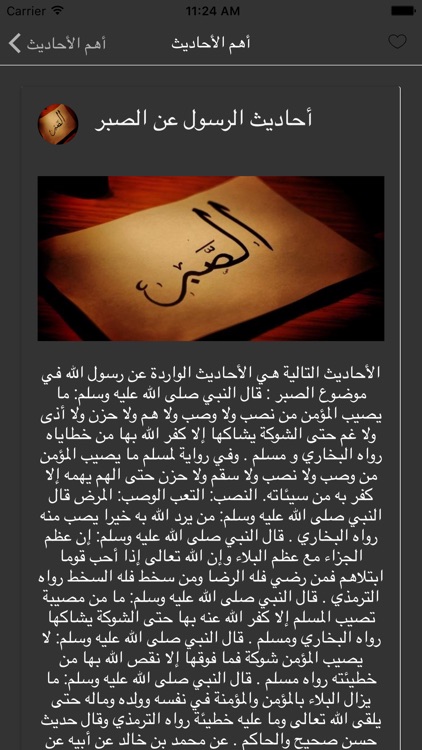 Carrier 11:24 AM
أهم الأحاديث أهم الأحاديث
أحاديث الرسول عن الصبر
الصبر
الصَّبر
الأحاديث التالية هي الأحاديث الواردة عن رسول الله في
موضوع الصبر : قال النبي صلى الله عليه وسلم: ما
يصيب المؤمن من نصب ولا وصب ولا هم ولا حزن ولا أذى
ولا غم حتى الشوكة يشاكها إلا كفر الله بها من خطاياه
رواه البخاري و مسلم . وفي رواية لمسلم ما يصيب المؤمن
من وصب ولا نصب ولا سقم ولا حزن حتى الهم يهمه إلا
كفر به من سيئاته. النصب: التعب الوصب: المرض قال
النبي صلى الله عليه وسلم: من يرد الله به خيرا يصب منه
رواه البخاري . قال النبي صلى الله عليه وسلم: إن عظم
الجزاء مع عظم البلاء وإن الله تعالى إذا أحب قوما
ابتلاهم فمن رضي فله الرضا ومن سخط فله السخط رواه
الترمذي . قال النبي صلى الله عليه وسلم: ما من مصيبة
تصيب المسلم إلا كفر الله عنه بها حتى الشوكة يشاكها
رواه البخاري ومسلم . قال النبي صلى الله عليه وسلم: لا
يصيب المؤمن شوكة فما فوقها إلا نقص الله بها من
خطيئته رواه مسلم . قال النبي صلى الله عليه وسلم: ما
يزال البلاء بالمؤمن والمؤمنة في نفسه وولده وماله حتى
يلقى الله تعالى وما عليه خطيئة رواه الترمذي وقال حديث
حسن صحيح والحاكم . عن محمد بن خالد عن أبيه عن